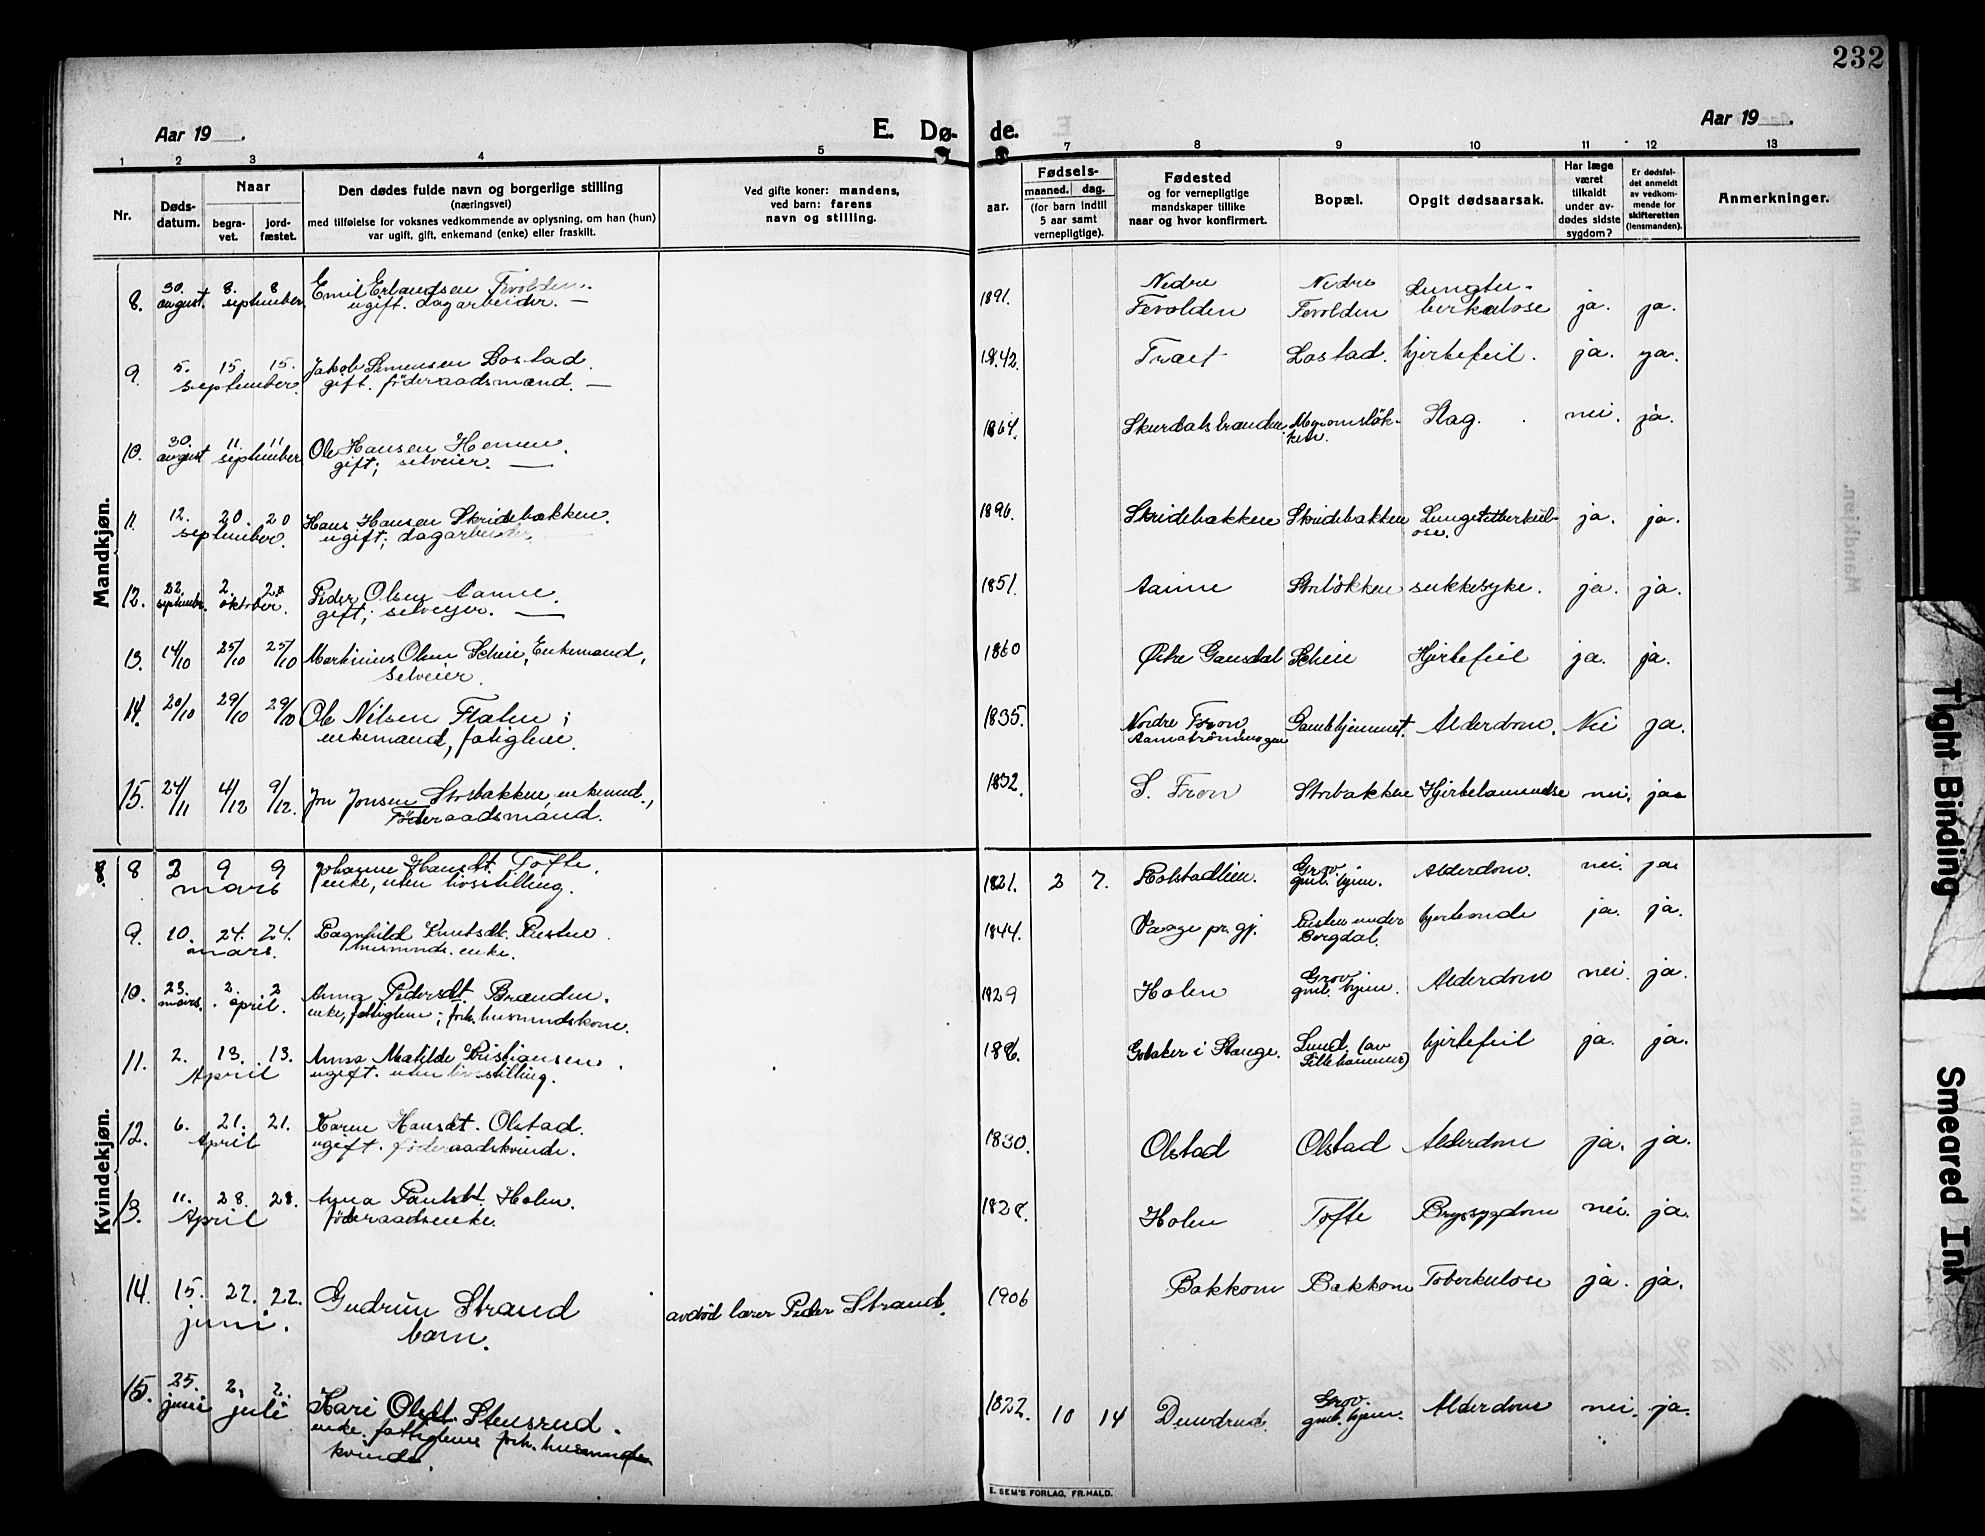 232
Aar 19 .
E. Dø- de.
Aar 19 .
1 2 3 4 5 7 8 9 10 11 12 13
Nr.
Døds-
datum.
Naar
begra-
vet.
jord-
fæstet.
Den dødes fulde navn og borgerlige stilling
(næringsvei)
med tilføielse for voksnes vedkommende av oplysning, om han (hun)
var ugift, gift, enkemand (enke) eller fraskilt.
Ved gifte koner: mandens,
ved barn: farens
navn og stilling.
aar.
Fødsels-
maaned. dag.
(for barn indtil
5 aar samt
vernepligtige).
Fødested
og for vernepligtige
mandskaper tillike
naar og hvor konfirmert.
Bopæl.
Opgit dødsaarsak.
Har læge
været
tilkaldt
under av-
dødes sidste
sygdom?
Er dødsfal-
det anmeldt
av vedkom-
mende for
skifteretten
(lensmanden).
Anmerkninger.
Mandkjøn.
30. 8. 8 Emil Erlandsen Fevolden. 1891. Nedre Nedre Lungtu-
8. august. september. ugift. dagarbeider. — Fevolden Fevolden berkulose ja. ja.
9. 5. 15. 15. Jakob Simensen Lostad. 1842. Træet Lostad. hjertefeil. ja. ja.
september. gift. föderaadsmand. —
10. 30. 11. 11 Ole Hansen Hemen. 1864. Skurdalsbranden Slag. nei. ja.
august september gift; selveier. —
11. 12. 20. 20 Hans Hansen Skridebakken. 1896. Skridebakken Skridebakken ja. ja.
september. ugift; dagarbeider. ose.
12. 22. 2. 2. Peder Olsen Aanne. 1851. Aanne Storløkken sukkesyke. ja. ja.
septembr. oktober. gift; selveyer. —
13. 14/10 25/10 25/10 Martinius Olsen Scheie, Enkemand, 1860 Østre Gausdal Scheie Hjertefeil ja. ja.
selveier.
14. 20/10 29/10 29/10 Ole Nilsen Flaten; 1835. Nordre Fron Gamlehjemmet. Alderdom. Nei ja.
enkemand, fatiglem.
15. 24/11 4/12 9/12. Jon Jonsen Storbakken, enkemd., 1832. S. Fron Storbakken nei. ja
Föderaadsmand.
Kvindekjøn.
8 2 9 9 Johanne Hansdt. Tofte. 1821. 2 7. Rolstadlien. Grov. Alderdom. nei. ja.
mars enke, uten livsstilling. gml. hjem.
9. 10. 24. 24. Ragnhild Knutsdt. Rusten. 1844. Vaage pr.gj. Rusten under ja. ja.
mars. husmnds. enke.
10. 23. 2. 2 Anna Pedersdt. Brænden. 1829 Holen Grov Alderdom nei. ja.
mars. april. enke, fattiglem; forh. husmandskone. gml. hjem.
11. 2. 13. 13. Anna Matilde Kristiansen. 1896. i Stange. Lund. (av hjertefeil ja. ja.
April ugift. uten livsstilling. Lillehammer)
12. 6. 21. 21. Karen Hansdt. Olstad. 1830. Olstad Olstad Alderdom ja. ja.
April ugift. föderaadskvinde.
13. 11. 28. 28. Paulsdt. Holen. 1828. Holen Tofte Brystsygdom nei. ja.
April föderaadsenke.
14. 15. 22. 22. Gudrun Strand avdöd lærer Peder Strand. 1906 Bakkom Bakkom Toberkulose ja. ja.
juni. barn.
15. 25. 2. 2. Kari Olsdt. Stensrud. 1822. 10 14 Grov. Alderdom nei. ja.
juni juli enke. fattiglem forh. husmands gml. hjem.
kvinde.
E. SEM'S FORLAG, FR.HALD.
Tight Binding
Smeared Ink